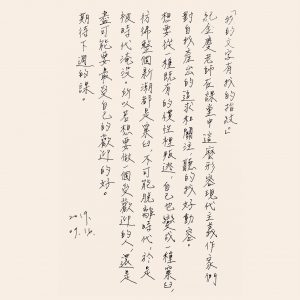 「我的文字有我的指紋」
紀金慶老師在課堂中這麼形容現代主義作家們
對自我產出的追求和關注，聽的我好動容。
想要從一種既有的慣性裡叛逃，自己也變成一種窠臼，
彷彿整個新潮都是窠臼，不可能脫離時代，於是
被時代淹沒，所以若想要做一個受歡迎的人，還是
盡可能要最受自己的歡迎的好。
期待下週的課。
2019.
09.16.